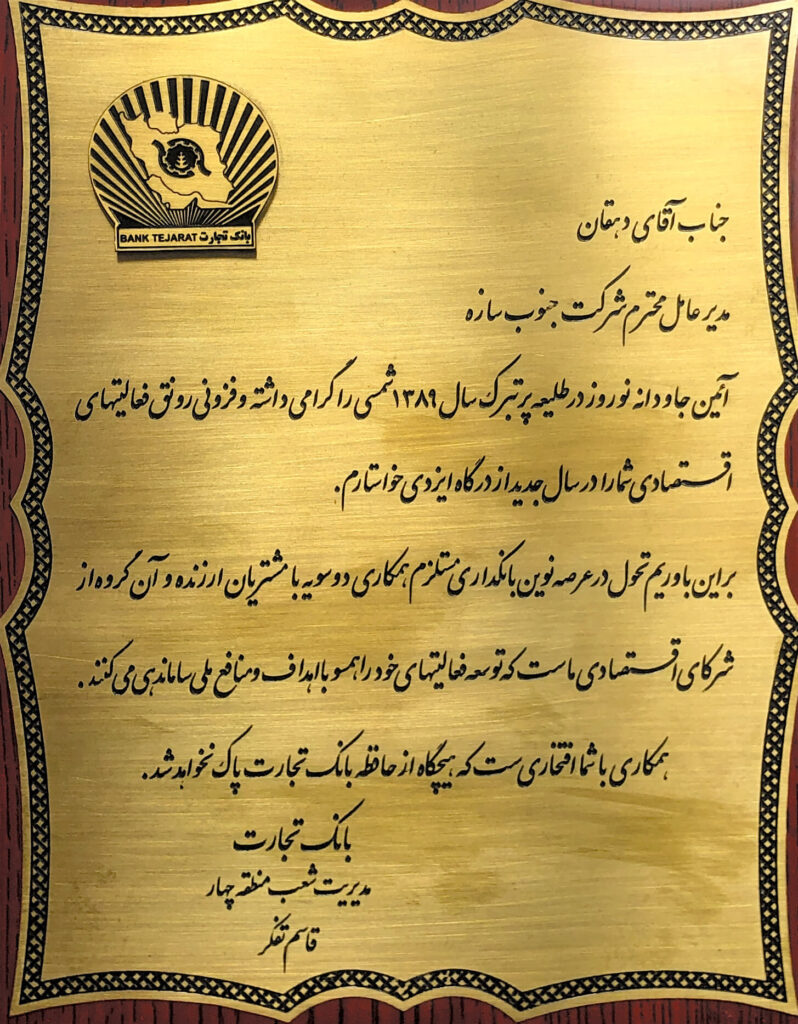 BANK TEJARAT بانک تجارت
جناب آقای دهقان
مدیر عامل محترم شرکت جنوب سازه
آئین جاودانه نوروز در طلیعه پر تبرک سال ۱۳۸۹ شمسی را گرامی داشته و فزونی رونق فعالیتهای
اقتصادی شما را در سال جدید از درگاه ایزدی خواستارم.
بر این باوریم تحول در عرصه نوین بانکداری مستلزم همکاری دوسویه با مشتریان ارزنده و آن گروه از
شرکای اقتصادی ماست که توسعه فعالیتهای خود را همسو با اهداف و منافع ملی ساماندهی می کنند .
همکاری با شما افتخاری ست که هیچگاه از حافظه بانک تجارت پاک نخواهد شد.
بانک تجارت
مدیریت شعب منطقه چهار
قاسم تفکر